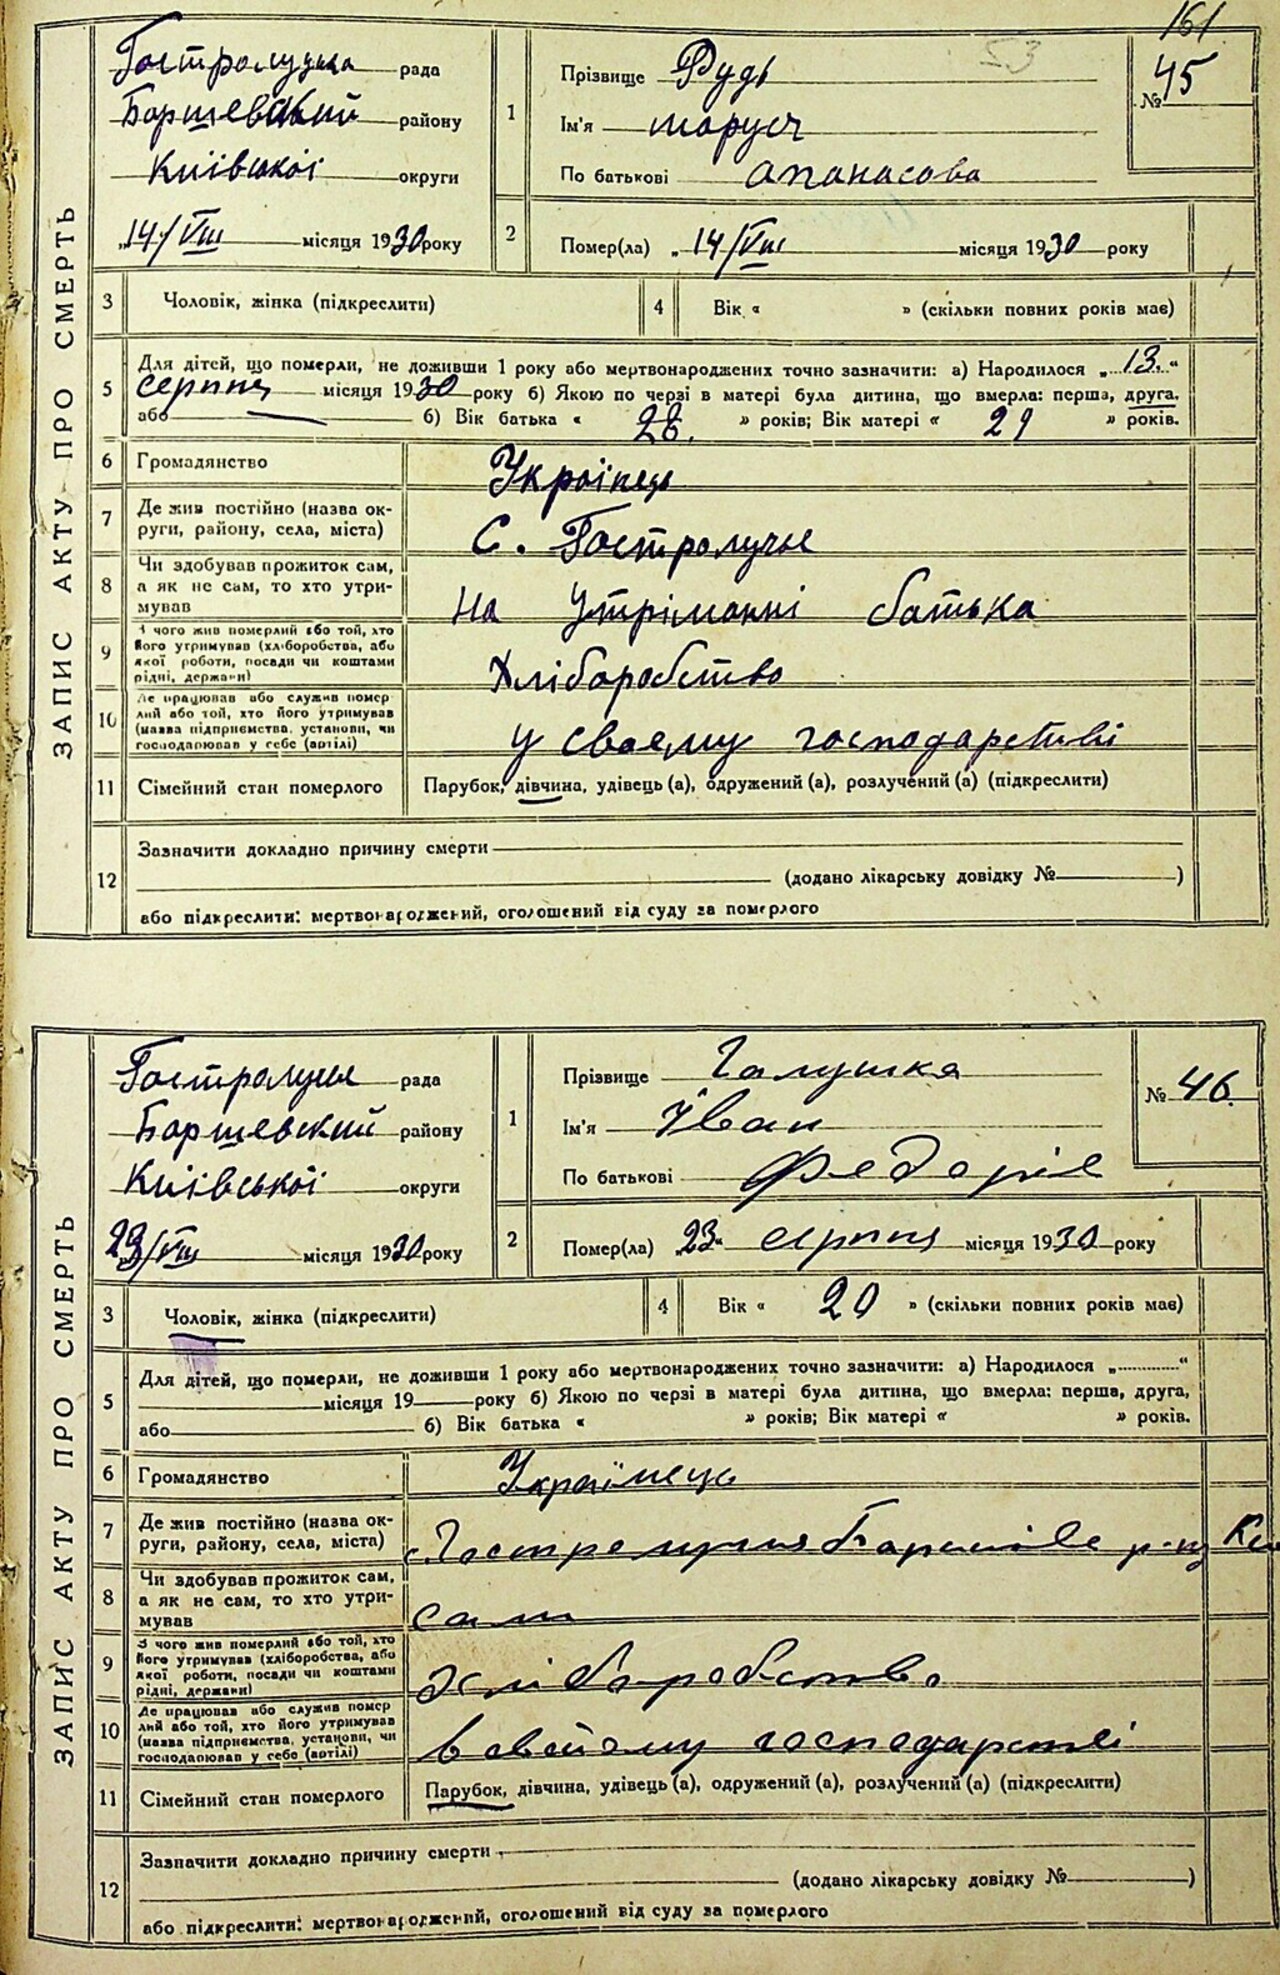 161
53
ЗАПИС АКТУ ПРО СМЕРТЬ
Гостролуцька рада
Боршевський району
Київської округи
„14/VIII місяця 1930 року
1
Прізвище Рудь
Ім'я маруся
По батькові апанасова
№ 45
2
Помер(ла) „14/VIII місяця 1930 року
3 Чоловік, жінка (підкреслити)
4 Вік « » (скільки повних років має)
5 Для дітей, що померли, не доживши 1 року або мертвонароджених точно зазначити: а) Народилося „13.“
серпня місяця 1930 року б) Якою по черзі в матері була дитина, що вмерла: перша, друга,
або б) Вік батька « 28. » років; Вік матері « 29 » років.
6 Громадянство Украінець
7 Де жив постійно (назва ок-
руги, району, села, міста) С. Гостролучье
8 Чи здобував прожиток сам,
а як не сам, то хто утри-
мував На Утріманні батька
9 З чого жив померлий або той, хто
його утримував (хліборобства, або
якої роботи, посади чи коштами
рідні, держави) Хліборобство
10 Де працював або служив помер
лий або той, хто його утримував
(назва підприємства, установи, чи
господарював у себе (артілі) у своему господарстві
11 Сімейний стан померлого Парубок, дівчина, удівець (а), одружений (а), розлучений (а) (підкреслити)
12 Зазначити докладно причину смерти
(додано лікарську довідку № )
або підкреслити: мертвонароджений, оголошений від суду за померлого
ЗАПИС АКТУ ПРО СМЕРТЬ
Гостролуцье рада
Боршевский району
Київської округи
23/VIII місяця 1930 року
1
Прізвище Галушка
Ім'я Іван
По батькові Федорів
№ 46.
2
Помер(ла) „23“ серпня місяця 1930 року
3 Чоловік, жінка (підкреслити)
4 Вік « 20 » (скільки повних років має)
5 Для дітей, що померли, не доживши 1 року або мертвонароджених точно зазначити: а) Народилося „ “
місяця 19 року б) Якою по черзі в матері була дитина, що вмерла: перша, друга,
або б) Вік батька « » років; Вік матері « » років.
6 Громадянство Українець
7 Де жив постійно (назва ок-
руги, району, села, міста) с. р-ну
8 Чи здобував прожиток сам,
а як не сам, то хто утри-
мував сам
9 З чого жив померлий або той, хто
його утримував (хліборобства, або
якої роботи, посади чи коштами
рідні, держави) Хліборобство
10 Де працював або служив помер
лий або той, хто його утримував
(назва підприємства, установи, чи
господарював у себе (артілі) в господарстві
11 Сімейний стан померлого Парубок, дівчина, удівець (а), одружений (а), розлучений (а) (підкреслити)
12 Зазначити докладно причину смерти
(додано лікарську довідку № )
або підкреслити: мертвонароджений, оголошений від суду за померлого